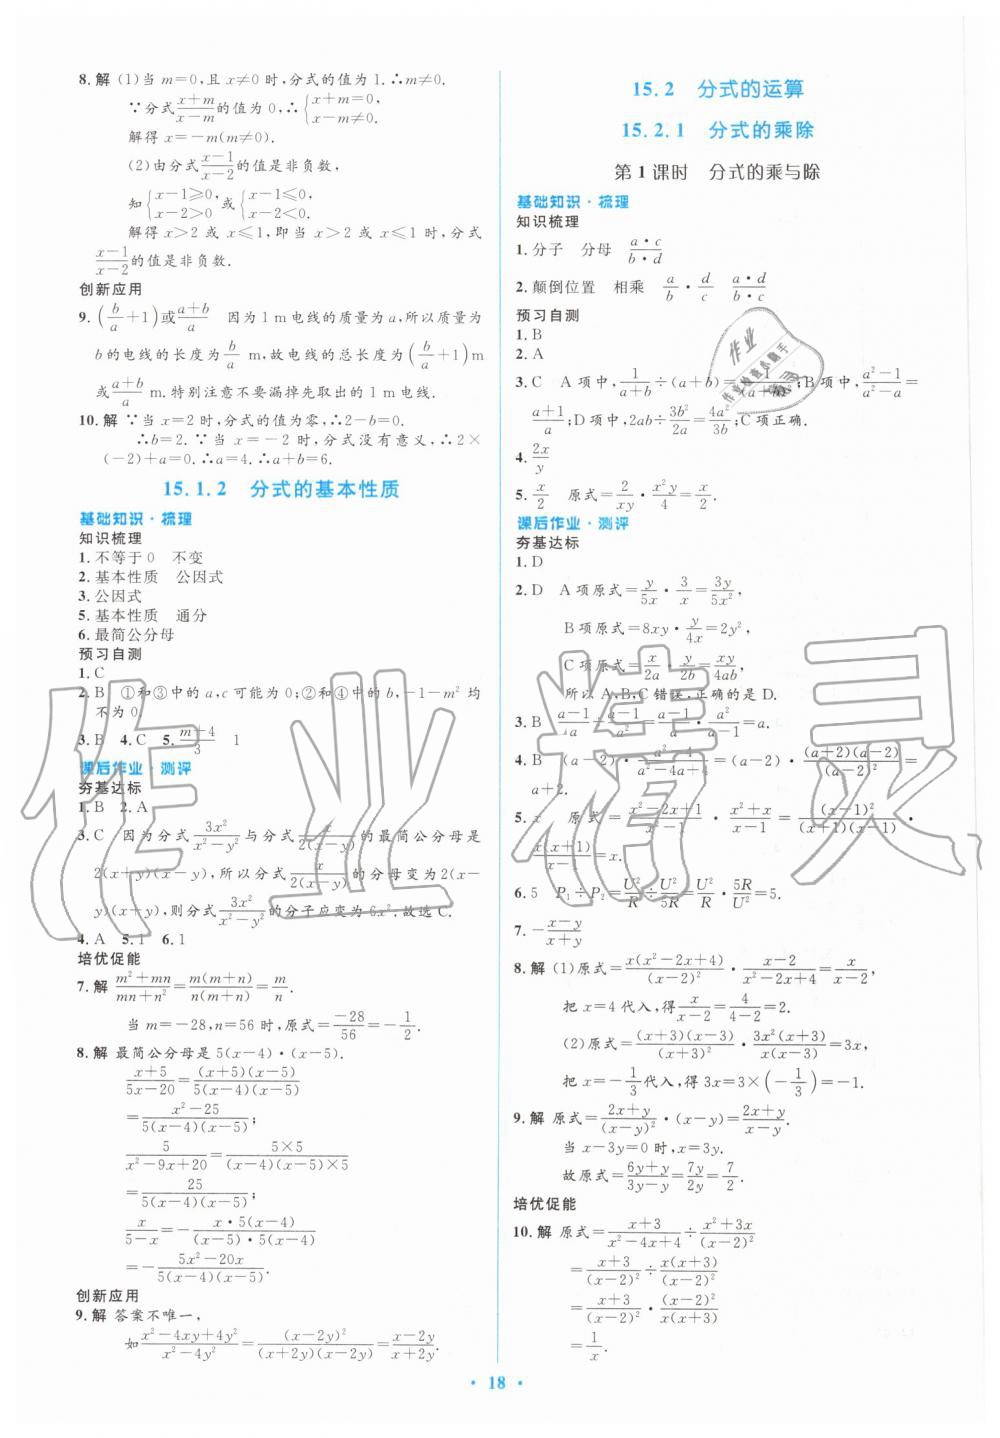 8. 解 (1)当 m=0,且 x≠0 时,分式的值为 1. ∴m≠0.
∵分式(x+m)/(x-m)的值为 0,∴{x+m=0, x-m≠0.
解得 x=-m(m≠0).
(2)由分式(x-1)/(x-2)的值是非负数,
知{x-1≥0, x-2>0 或{x-1≤0, x-2<0.
解得 x>2 或 x≤1,即当 x>2 或 x≤1 时,分式
(x-1)/(x-2)的值是非负数.
创新应用
9. (b/a+1)或(a+b)/a 因为 1 m 电线的质量为 a,所以质量为
b 的电线的长度为 b/a m,故电线的总长度为(b/a+1)m
或(a+b)/a m. 特别注意不要漏掉先取出的 1 m 电线.
10. 解 ∵当 x=2 时,分式的值为零,∴2-b=0.
∴b=2. ∵当 x=-2 时,分式没有意义,∴2×
(-2)+a=0. ∴a=4. ∴a+b=6.
15.1.2 分式的基本性质
基础知识·梳理
知识梳理
1. 不等于 0 不变
2. 基本性质 公因式
3. 公因式
5. 基本性质 通分
6. 最简公分母
预习自测
1. C
2. B ①和③中的 a,c 可能为 0;②和④中的 b,-1-m² 均
不为 0.
3. B 4. C 5. (m+4)/3 1
课后作业·测评
夯基达标
1. B 2. A
3. C 因为分式 3x²/(x²-y²) 与分式 x/(2(x-y)) 的最简公分母是
2(x+y)(x-y),所以分式 x/(2(x-y)) 的分母变为 2(x-
y)(x+y),则分式 3x²/(x²-y²) 的分子应变为 6x². 故选 C.
4. A 5. 1 6. 1
培优促能
7. 解 (m²+mn)/(mn+n²)=m(m+n)/n(m+n)=m/n.
当 m=-28,n=56 时,原式=-28/56=-1/2.
8. 解 最简公分母是 5(x-4)·(x-5).
(x+5)/(5x-20)=(x+5)(x-5)/5(x-4)(x-5)
=(x²-25)/5(x-4)(x-5);
5/(x²-9x+20)=5×5/(x-4)(x-5)×5
=25/5(x-4)(x-5);
x/(5-x)=-x·5(x-4)/(x-5)·5(x-4)
=-(5x²-20x)/5(x-4)(x-5).
创新应用
9. 解 答案不唯一,
如(x²-4xy+4y²)/(x²-4y²)=(x-2y)²/(x+2y)(x-2y)=(x-2y)/(x+2y).
15.2 分式的运算
15.2.1 分式的乘除
第 1 课时 分式的乘与除
基础知识·梳理
知识梳理
1. 分子 分母 (a·c)/(b·d)
2. 颠倒位置 相乘 a/b·d/c (a·d)/(b·c)
预习自测
1. B
2. A
3. C A 项中,1/(a+b)÷(a+b)=1/(a+b)²;B 项中,(a²-1)/(a²-a)=
(a+1)/a;D 项中,2ab÷3b²/2a=4a²/3b;C 项正确.
4. 2x/y
5. x/2 原式=2/xy·x²y/4=x/2.
课后作业·测评
夯基达标
1. D
2. D A 项原式=y/5x·3/x=3y/5x²,
B 项原式=8xy·y/4x=2y²,
C 项原式=x/2a·y/2b=xy/4ab,
所以 A,B,C 错误,正确的是 D.
3. B (a-1)/a÷(a-1)/a²=(a-1)/a·a²/(a-1)=a.
4. B (a-2)·(a²-4)/(a²-4a+4)=(a-2)·(a+2)(a-2)/(a-2)²=
a+2.
5. x 原式=(x²-2x+1)/(x²-1)·(x²+x)/(x-1)=(x-1)²/(x+1)(x-1)·
x(x+1)/(x-1)=x.
6. 5 P₁÷P₂=U²/R÷U²/5R=U²/R·5R/U²=5.
7. -(x-y)/(x+y)
8. 解 (1)原式=x(x²-2x+4)/(x-2)²·(x-2)/(x²-2x+4)=x/(x-2),
把 x=4 代入,得 x/(x-2)=4/(4-2)=2.
(2)原式=(x+3)(x-3)/(x+3)²·3x²(x+3)/x(x-3)=3x,
把 x=-1/3 代入,得 3x=3×(-1/3)=-1.
9. 解 原式=(2x+y)/(x-y)²·(x-y)=(2x+y)/(x-y).
当 x-3y=0 时,x=3y.
故原式=(6y+y)/(3y-y)=7y/2y=7/2.
培优促能
10. 解 原式=(x+3)/(x²-4x+4)÷(x²+3x)/(x-2)²
=(x+3)/(x-2)²÷x(x+3)/(x-2)²
=(x+3)/(x-2)²·(x-2)²/x(x+3)
=1/x.
· 18 ·
作业精灵